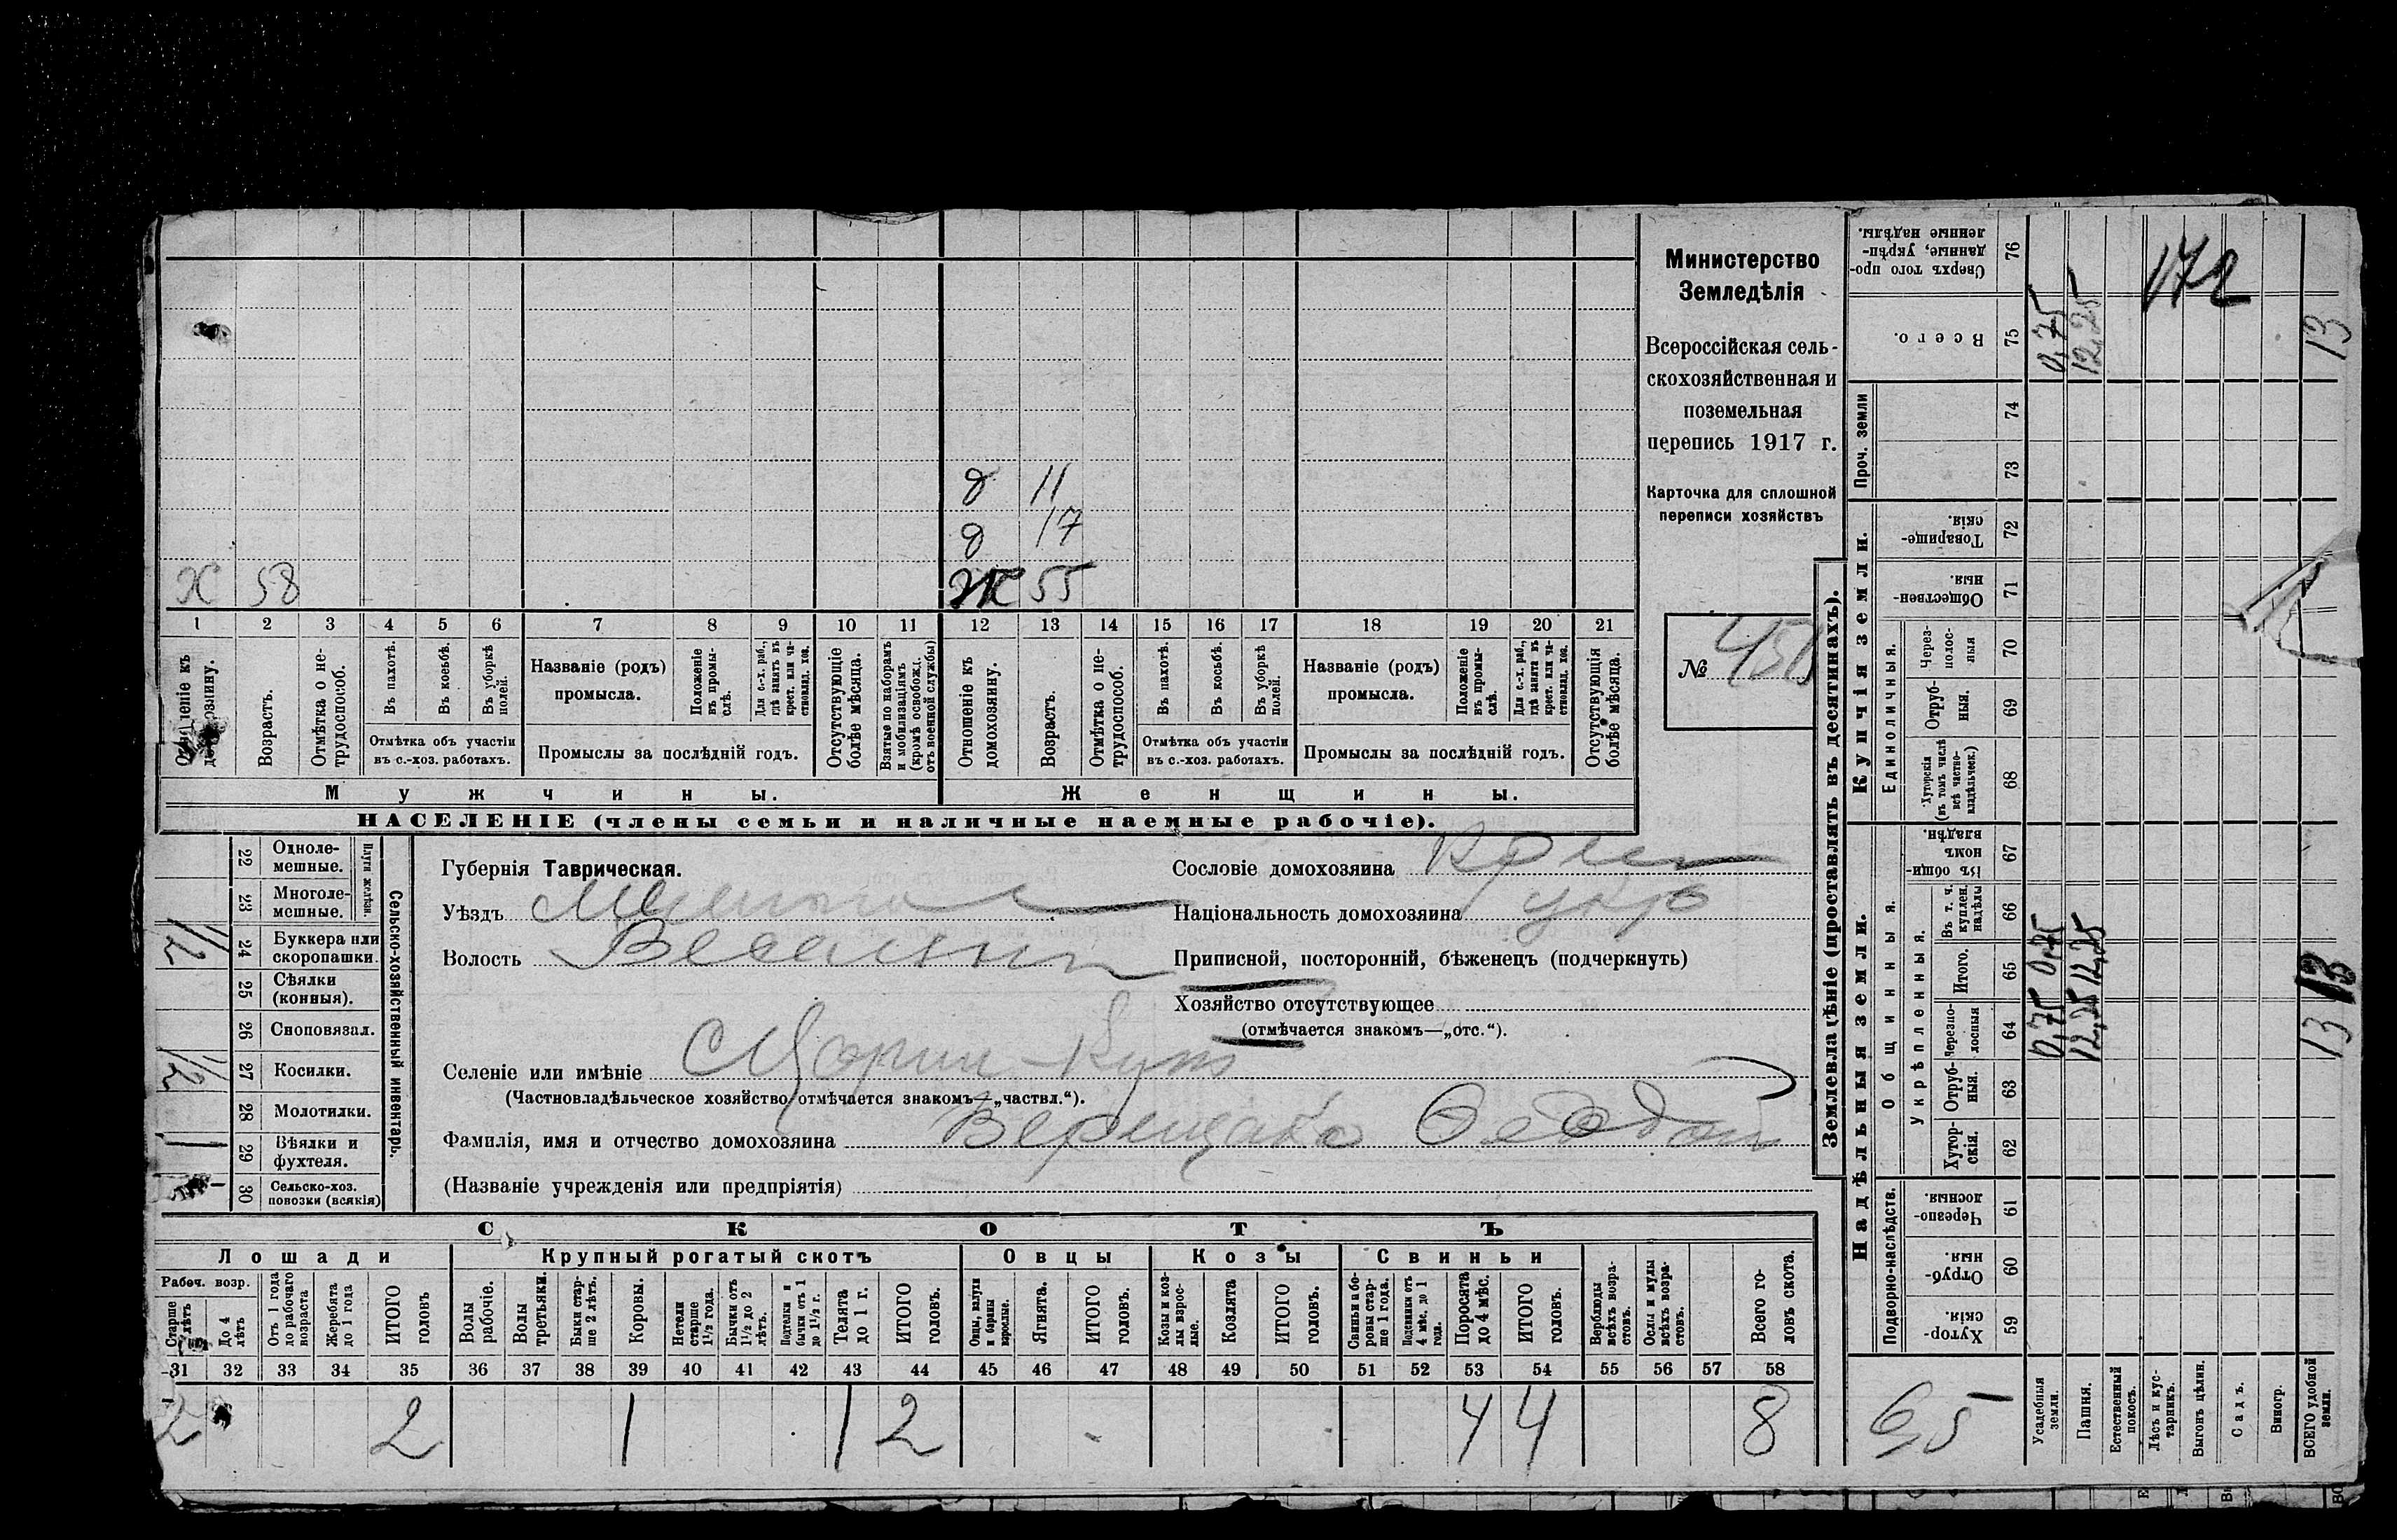 Министерство
Земледѣлія
Всероссійская сель-
скохозяйственная и
поземельная
перепись 1917 г.
Карточка для сплошной
переписи хозяйствъ
№ 450
д 11
д 17
Х 58
Ж 55
1 2 3 4 5 6 7 8 9 10 11 12 13 14 15 16 17 18 19 20 21
Отношеніе къ домохозяину.
Возрастъ.
Отмѣтка о не-
трудоспособ.
Въ пахотѣ.
Въ косьбѣ.
Въ уборкѣ
полей.
Отмѣтка объ участіи
въ с.-хоз. работахъ.
Названіе (родъ)
промысла.
Положеніе
въ промы-
слѣ.
Для с.-х. раб.,
гдѣ занятъ въ
крест. или ча-
стновлад. хоз.
Промыслы за послѣдній годъ.
Отсутствующіе
болѣе мѣсяца.
Взятые по наборамъ
и мобилизаціямъ
(кромѣ освобожд.
отъ военной службы)
Отношеніе къ
домохозяину.
Возрастъ.
Отмѣтка о не-
трудоспособ.
Въ пахотѣ.
Въ косьбѣ.
Въ уборкѣ
полей.
Отмѣтка объ участіи
въ с.-хоз. работахъ.
Названіе (родъ)
промысла.
Положеніе
въ промы-
слѣ.
Для с.-х. раб.,
гдѣ занята въ
крест. или ча-
стновлад. хоз.
Промыслы за послѣдній годъ.
Отсутствующія
болѣе мѣсяца.
Мужчины.
Женщины.
НАСЕЛЕНІЕ (члены семьи и наличные наемные рабочіе).
Сельско-хозяйственный инвентарь.
Плуги желѣзн.
22 Одноле-
мешные.
23 Многоле-
мешные.
1/2 24 Буккера или
скоропашки.
25 Сѣялки
(конныя).
26 Сноповязал.
1/2 27 Косилки.
28 Молотилки.
1 29 Вѣялки и
фухтеля.
30 Сельско-хоз.
повозки (всякія)
Губернія Таврическая.
Уѣздъ Мелитопол
Волость Веселянск
Селеніе или имѣніе с Царин-Кут
(Частновладѣльческое хозяйство отмѣчается знакомъ—„частвл.“).
Фамилія, имя и отчество домохозяина Верещака Федот
(Названіе учрежденія или предпріятія)
Сословіе домохозяина крест
Національность домохозяина укр
Приписной, посторонній, бѣженецъ (подчеркнуть)
Хозяйство отсутствующее
(отмѣчается знакомъ—„отс.“).
СКОТЪ
Лошади
Крупный рогатый скотъ
Овцы
Козы
Свиньи
Рабоч. возр.
Старше
4 лѣтъ
До 4
лѣтъ
Отъ 1 года
до рабочаго
возраста
Жеребята
до 1 года
ИТОГО
головъ
Волы
рабочіе.
Волы
третьяки.
Быки стар-
ше 2 лѣтъ.
Коровы.
Нетели
старше
1½ года.
Бычки отъ
1½ до 2
лѣтъ.
Подтелки и
бычки отъ 1
до 1½ г.
Телята
до 1 г.
ИТОГО
головъ.
Овцы, валухи
и бараны
взрослые.
Ягнята.
ИТОГО
головъ.
Козы и коз-
лы взрос-
лые.
Козлята
ИТОГО
головъ.
Свиньи и бо-
ровы стар-
ше 1 года.
Подсвинки отъ
4 мѣс. до 1
года.
Поросята
до 4 мѣс.
ИТОГО
головъ.
Верблюды
всѣхъ возра-
стовъ.
Ослы и мулы
всѣхъ возра-
стовъ.
Всего го-
ловъ скота.
31 32 33 34 35 36 37 38 39 40 41 42 43 44 45 46 47 48 49 50 51 52 53 54 55 56 57 58
2 2 1 1 2 4 4 8
Землевладѣніе (проставлять въ десятинахъ).
Купчія земли.
Надѣльныя земли.
Сверхъ того про-
данные, укрѣп-
ленные надѣлы.
76
172
Всего.
75
0,75
12,25
13
Проч. земли
74
73
Товарище-
скія.
72
Обществен-
ныя.
71
Единоличныя.
Через-
полос-
ныя
70
Отруб-
ныя.
69
Хуторскія
(въ томъ числѣ
всѣ частно-
владѣльческ.)
68
Общинныя.
Въ общин-
номъ
владѣн.
67
Укрѣпленныя.
Въ т. ч.
куплен.
надѣлы
66
Итого.
65
0,75
12,25
13
Черезпо-
лосныя
64
0,75
12,25
13
Отруб-
ныя.
63
Хутор-
скія.
62
Подворно-наслѣдств.
Черезпо-
лосныя.
61
Отруб-
ныя.
60
Хутор-
скія.
59
65
Усадебныя
земли.
Пашня.
Естественный
покосъ.
Лѣсъ и кус-
тарникъ.
Выгонъ цѣлин.
Садъ.
Виногр.
ВСЕГО удобной
земли.